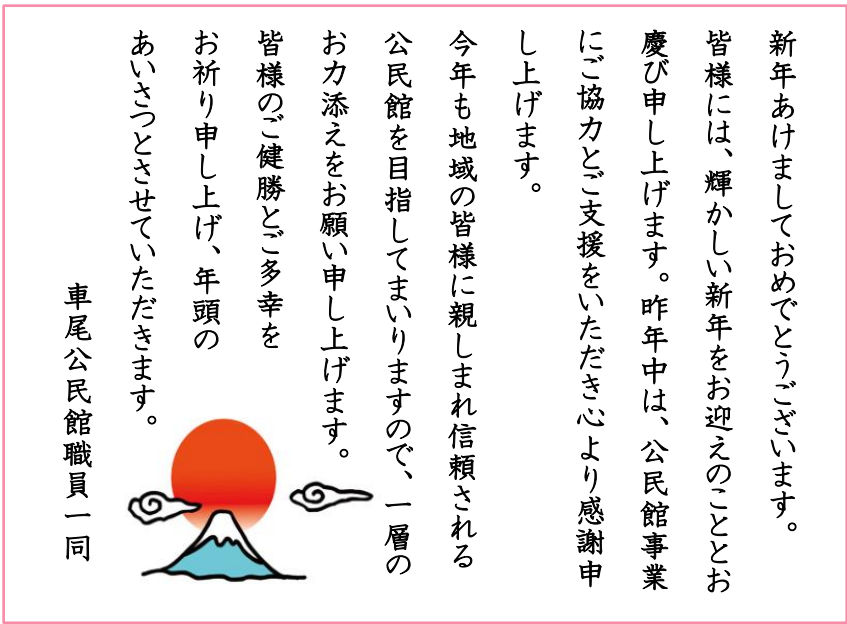 新年あけましておめでとうございます。
皆様には、輝かしい新年をお迎えのこととお
慶び申し上げます。昨年中は、公民館事業
にご協力とご支援をいただき心より感謝申
し上げます。
今年も地域の皆様に親しまれ信頼される
公民館を目指してまいりますので、一層の
お力添えをお願い申し上げます。
皆様のご健勝とご多幸を
お祈り申し上げ、年頭の
あいさつとさせていただきます。
車尾公民館職員一同